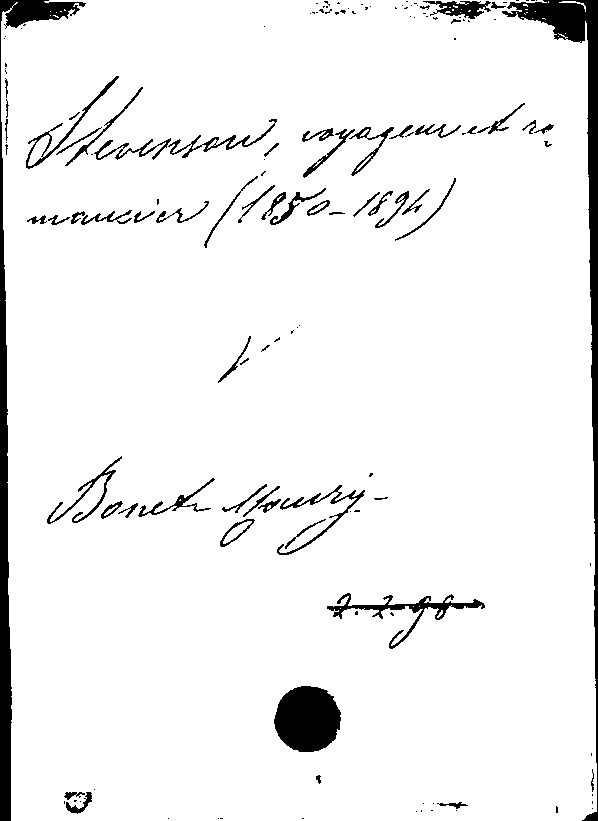 Stevenson, voyageur et ro-
mancier (1850-1894)
Bonet-Maury-
2.2.98